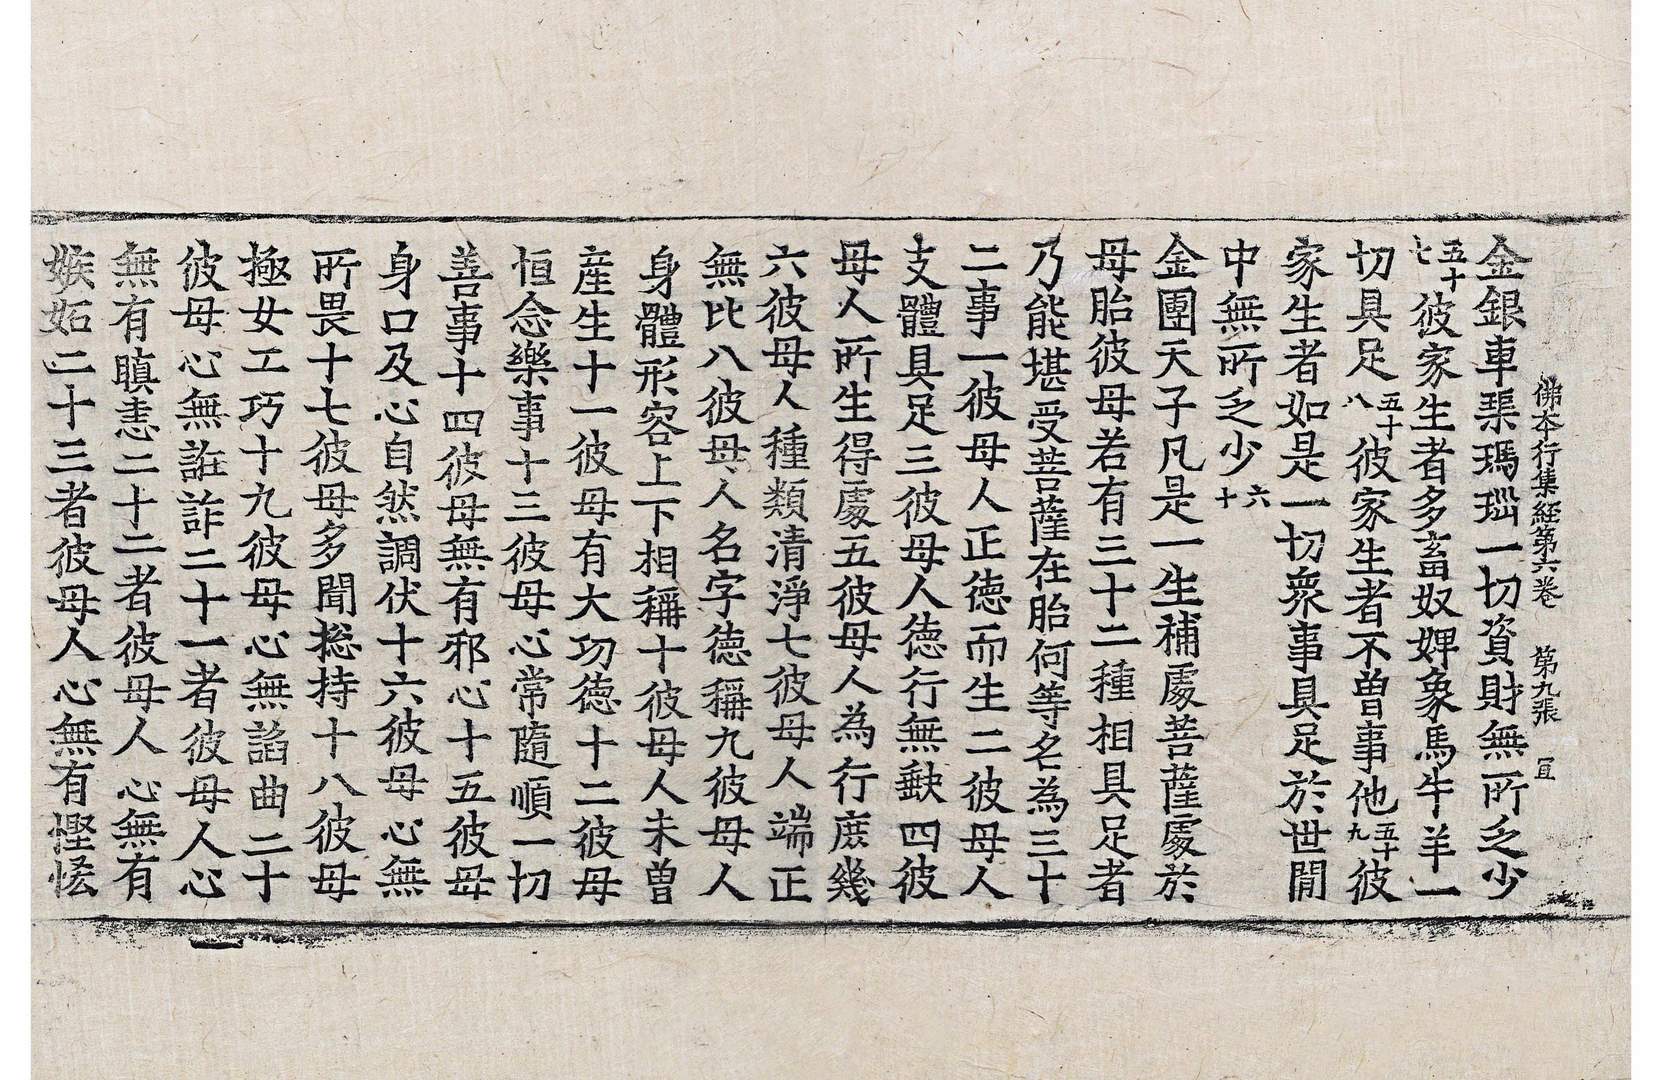 佛本行集經第六卷 第九張 宜
金銀車璖瑪瑙一切資財無所乏少
五十七彼家生者多畜奴婢象馬牛羊一
切具足五十八彼家生者不曾事他五十九彼
家生者如是一切衆事具足於世間
中無所乏少六十
金團天子凡是一生補處菩薩處於
母胎彼母若有三十二種相具足者
乃能堪受菩薩在胎何等名為三十
二事一彼母人正德而生二彼母人
支體具足三彼母人德行無缺四彼
母人所生得處五彼母人為行庶幾
六彼母人種類清淨七彼母人端正
無比八彼母人名字德稱九彼母人
身體形容上下相稱十彼母人未曾
産生十一彼母有大功德十二彼母
恒念樂事十三彼母心常隨順一切
善事十四彼母無有邪心十五彼母
身口及心自然調伏十六彼母心無
所畏十七彼母多聞揔持十八彼母
極女工巧十九彼母心無諂曲二十
彼母心無誑詐二十一者彼母人心
無有瞋恚二十二者彼母人心無有
嫉妬二十三者彼母人心無有慳悋